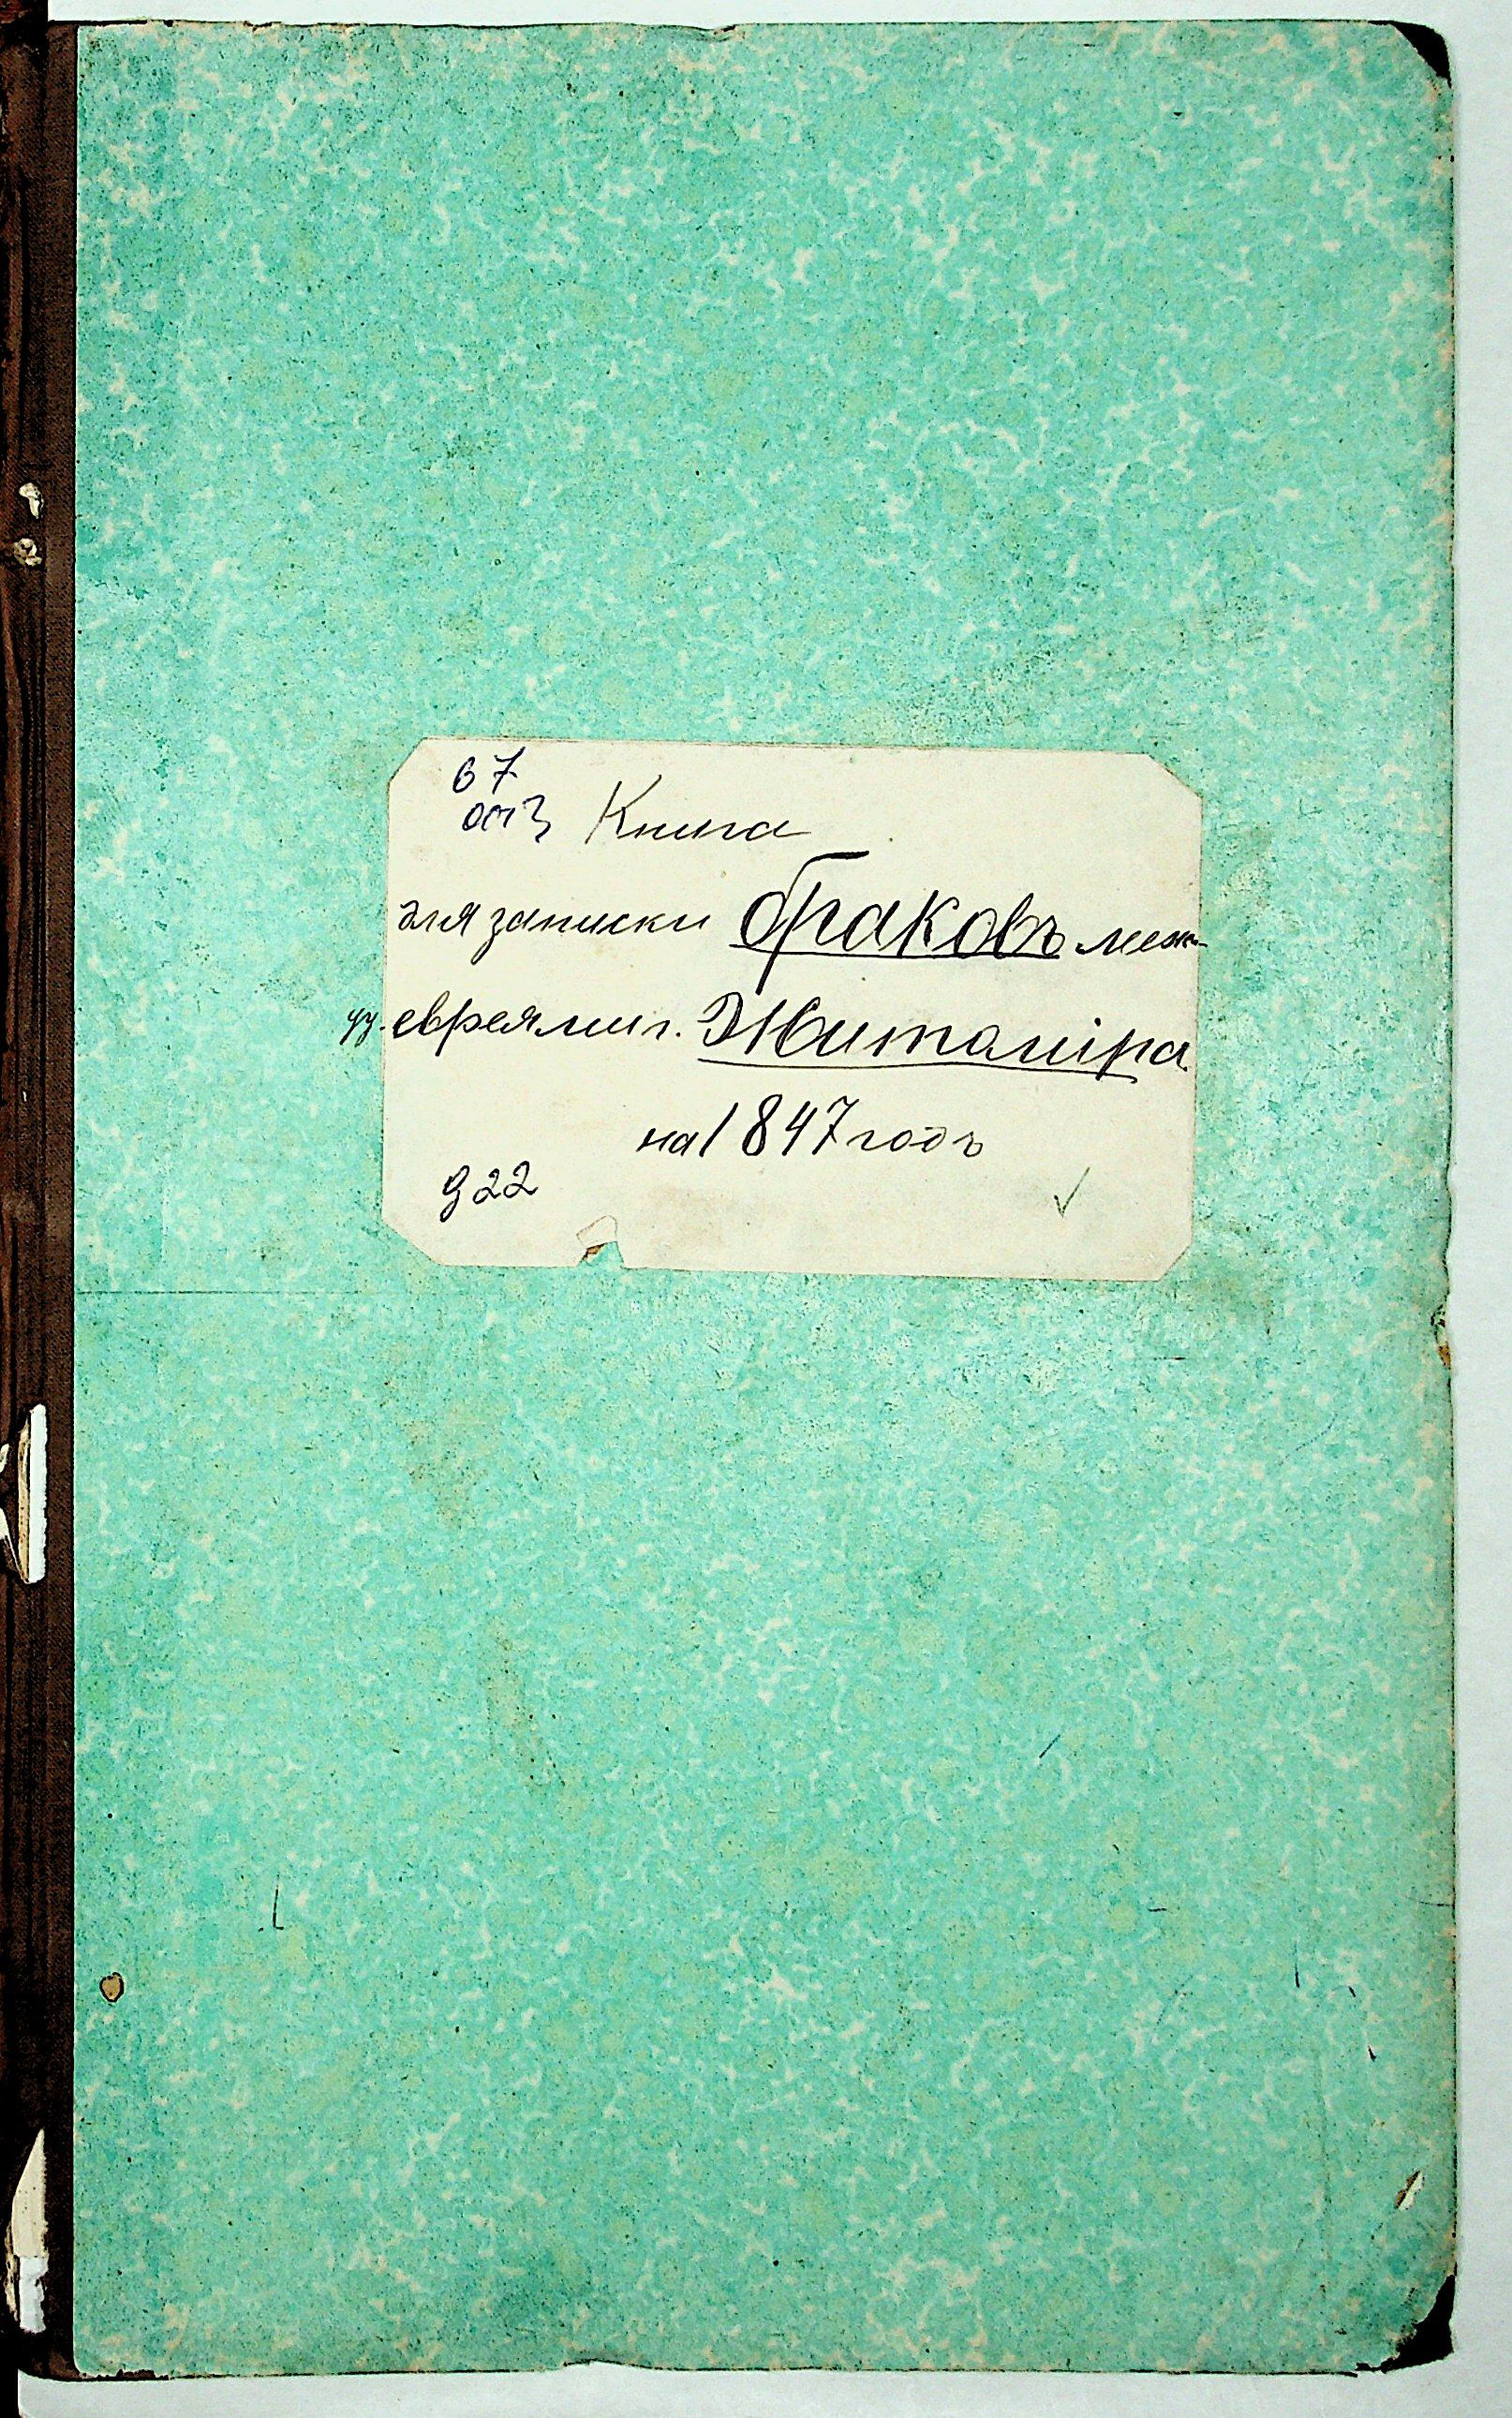 67
оп 3 Книга
для записки браковъ меж-
ду евреями г. Житоміра
на 1847 годъ
922